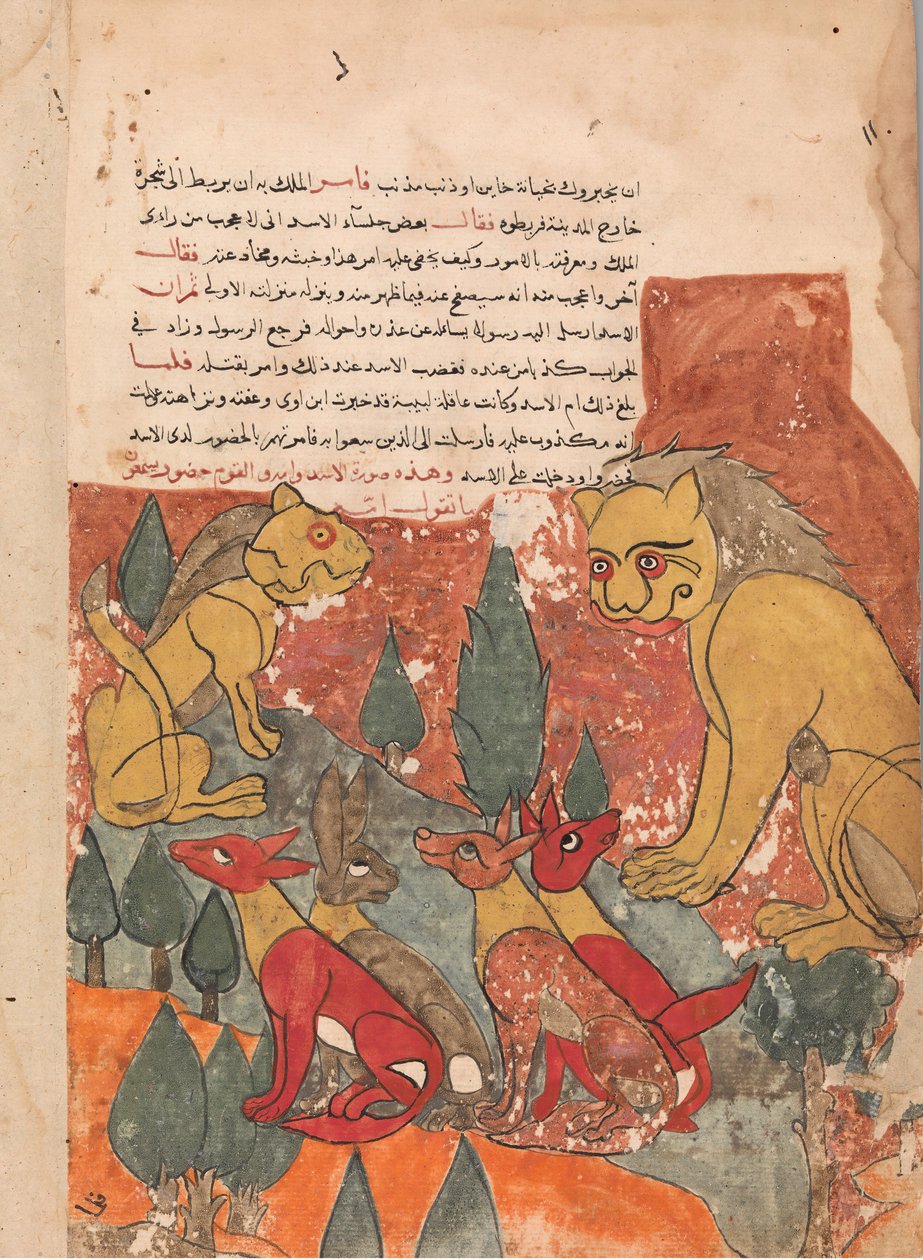 ان يخبروك بخيانة خاين او ذنب مذنب فامر الملك به ان يربط الى شجرة
خارج المدينة فربطوه فقال بعض جلسآء الاسد انى لاعجب من راى
الملك ومعرفته بالامور وكيف يخفى عليه امر هذا وخبثه ومخادعته فقال
آخر واعجب منه انه سيصفح عنه فيما ظهر منه وينزله منزلته الاولى ثم ان
الاسد ارسل اليه رسولا يساله عن عذره واحواله فرجع الرسول وزاد فى
الجواب كذبا من عنده فغضب الاسد عند ذلك وامر بقتله فلما
بلغ ذلك ام الاسد وكانت عاقلة لبيبة قد خبرت ابن اوى وعفته ونزاهته وعلمت
انه مكذوب عليه فارسلت الى الذين سعوا به فامرتهم بالحضور لدى الاسد
فحضروا ودخلت على الاسد وهذه صورة الاسد وامه والقوم حضور يسمعون
ما تقول امه
١١